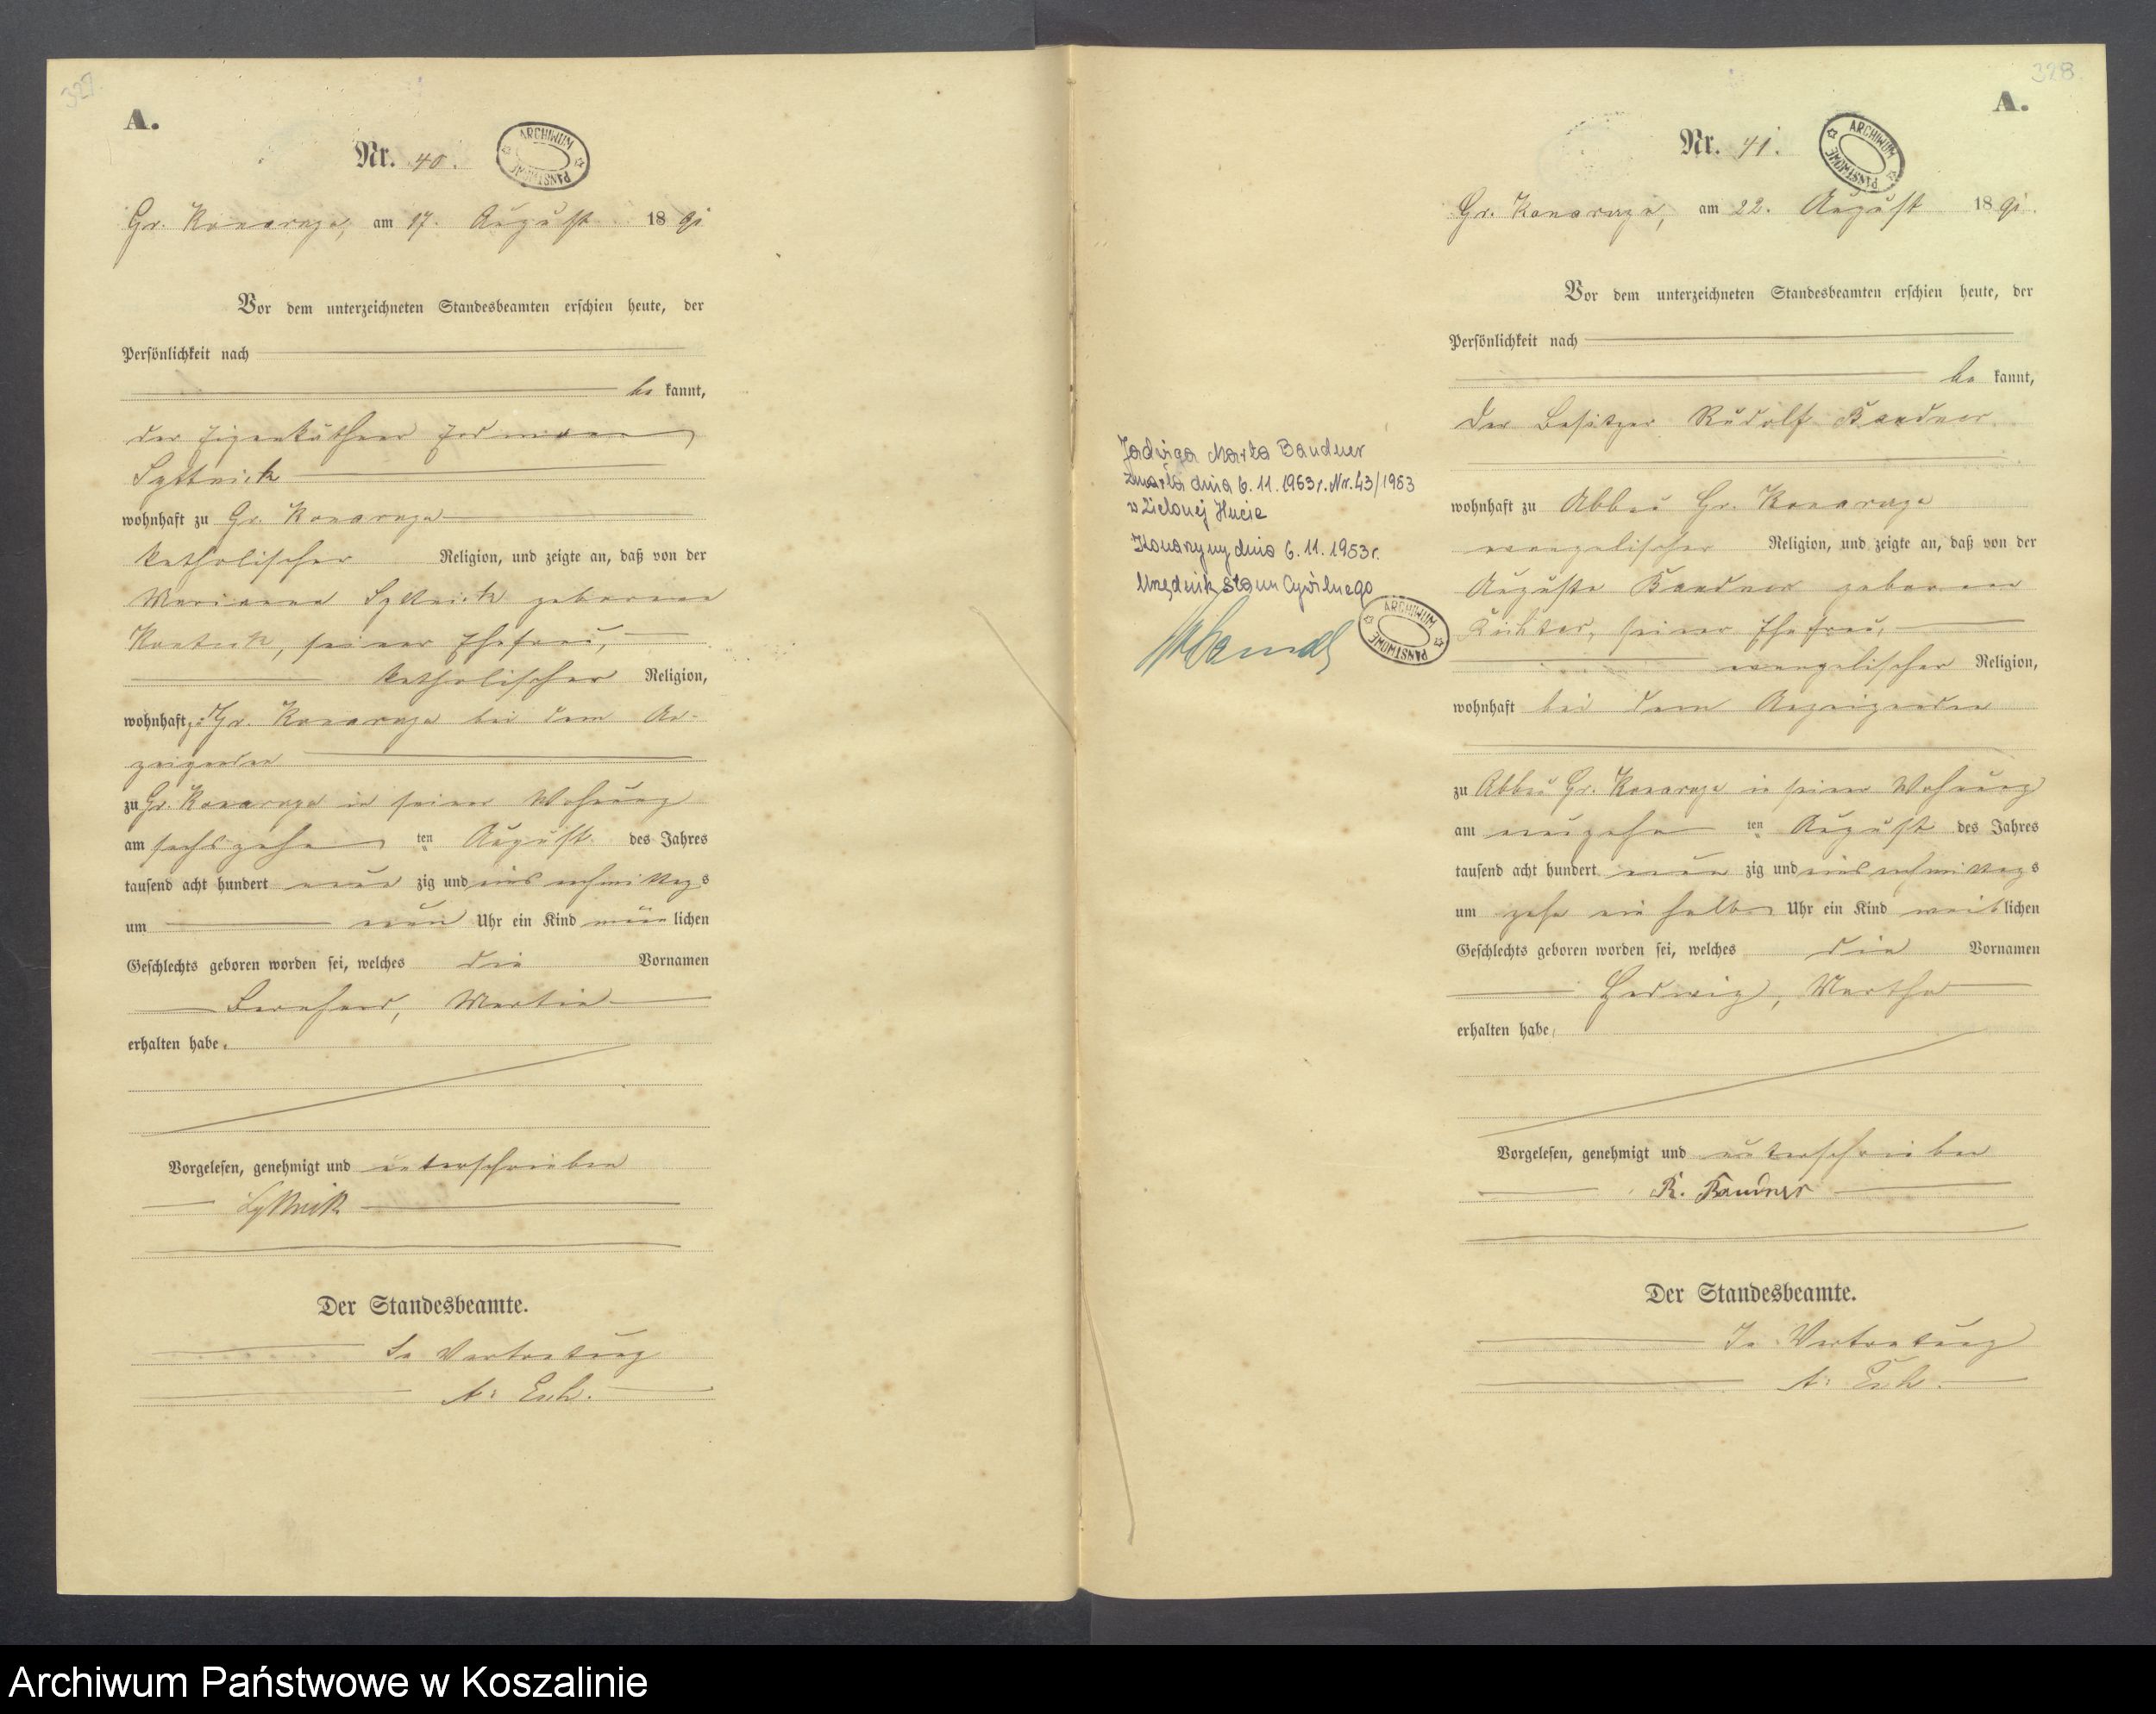 327.
A.
Nr. 40.
ARCHIWUM PAŃSTWOWE
Gr. Konarzyn, am 17. August 1891
Vor dem unterzeichneten Standesbeamten erschien heute, der
Persönlichkeit nach
be kannt,
der Eigenkäthner
wohnhaft zu Gr. Konarzyn
katholischer Religion, und zeigte an, daß von der
Marianna geborene
seiner Ehefrau,
katholischer Religion,
wohnhaft zu Gr. Konarzyn bei dem An-
zeigenden
zu Gr. Konarzyn in seiner Wohnung
am sechszehn ten August des Jahres
tausend acht hundert neun zig und eins nachmittags
um neun Uhr ein Kind männ lichen
Geschlechts geboren worden sei, welches die Vornamen
Bernhard, Martin
erhalten habe.
Vorgelesen, genehmigt und unterschrieben
Der Standesbeamte.
In Vertretung
328.
A.
Nr. 41.
ARCHIWUM PAŃSTWOWE
Gr. Konarzyn, am 22. August 1891.
Vor dem unterzeichneten Standesbeamten erschien heute, der
Persönlichkeit nach
be kannt,
der Besitzer Rudolf Bandner
wohnhaft zu Abbau Gr. Konarzyn
evangelischer Religion, und zeigte an, daß von der
Auguste Bandner geborenen
Richter, seiner Ehefrau,
evangelischer Religion,
wohnhaft bei dem Anzeigenden
zu Abbau Gr. Konarzyn in seiner Wohnung
am neunzehn ten August des Jahres
tausend acht hundert neun zig und eins nachmittags
um zehn ein halb Uhr ein Kind weib lichen
Geschlechts geboren worden sei, welches die Vornamen
Hedwig, Martha
erhalten habe,
Vorgelesen, genehmigt und unterschrieben
R. Bandner
Der Standesbeamte.
In Vertretung
Jadwiga Marta Bandner
zmarła dnia 6. 11. 1953 r. Nr. 43/1953
w Zielonej Hucie
Konarzyny dnia 6. 11. 1953 r.
Urzędnik Stanu Cywilnego
ARCHIWUM PAŃSTWOWE
Archiwum Państwowe w Koszalinie